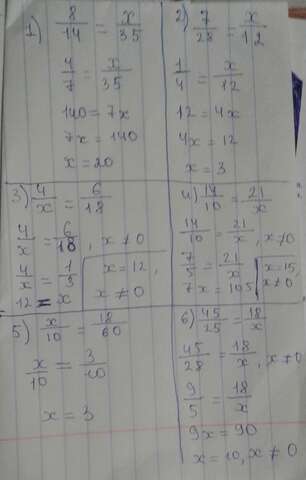 1) 8/14 = x/35
4/7 = x/35
140 = 7x
7x = 140
x = 20
2) 7/28 = x/12
1/4 = x/12
12 = 4x
4x = 12
x = 3
3) 4/x = 6/18
4/x = 6/18, x ≠ 0
4/x = 1/3
12 = x
x = 12,
x ≠ 0
4) 14/10 = 21/x
14/10 = 21/x, x ≠ 0
7/5 = 21/x
7x = 105
x = 15
x ≠ 0
5) x/10 = 18/60
x/10 = 3/10
x = 3
6) 45/25 = 18/x
45/28 = 18/x, x ≠ 0
9/5 = 18/x
9x = 90
x = 10, x ≠ 0